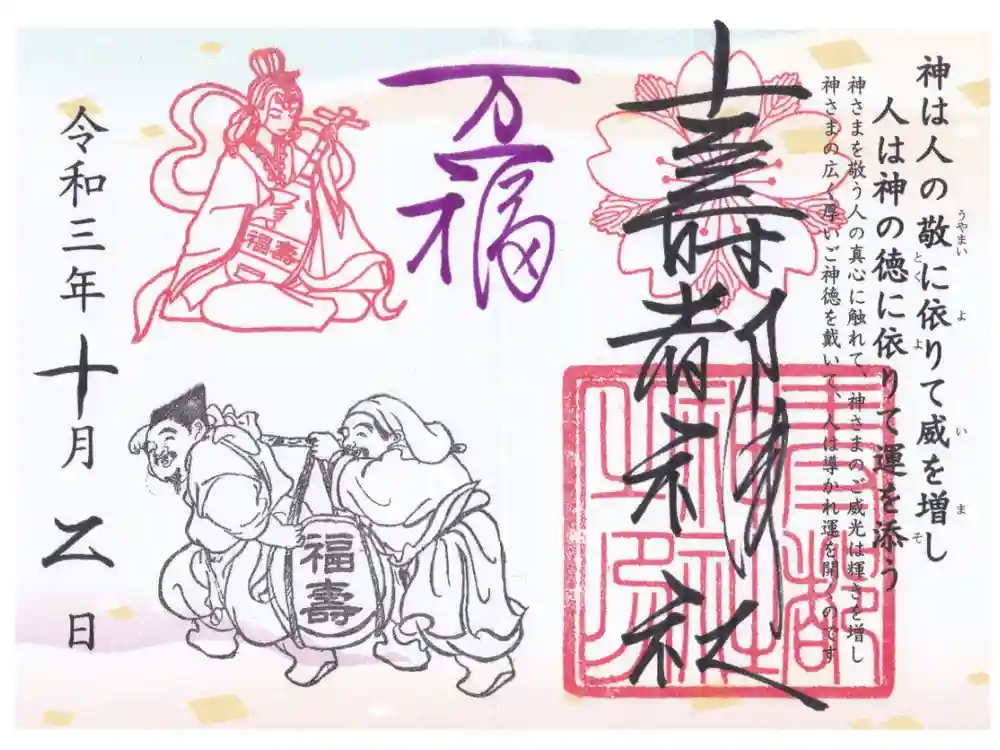 神は人の敬に依りて威を増し
うやまい よ い ま
人は神の徳に依りて運を添う
とく よ そ
神さまを敬う人の真心に触れて、神さまのご威光は輝きを増し
神さまの広く厚いご神徳を戴いて、人は導かれ運を開くのです
壽都神社
壽都
神社
之印
万福
福壽
福壽
令和三年十月二日